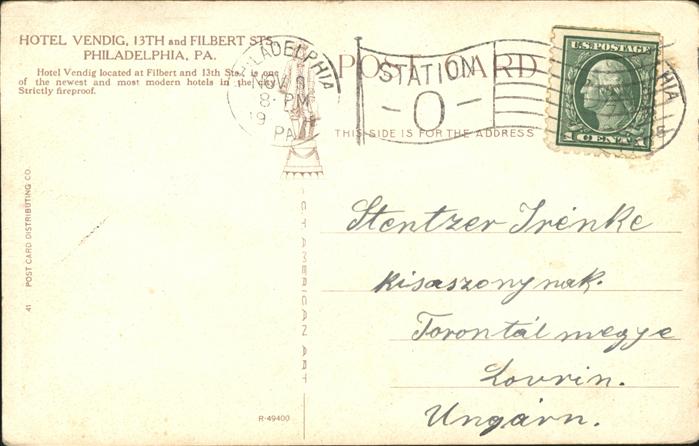 HOTEL VENDIG, 13TH and FILBERT STS.
PHILADELPHIA, PA.
Hotel Vendig located at Filbert and 13th Sts., is one
of the newest and most modern hotels in the
Strictly fireproof.
PHILADELPHIA
NOV 8
8- PM
19
PA
POST CARD
STATION
- O -
THIS SIDE IS FOR THE ADDRESS
U.S. POSTAGE
1 CENT 1
41 POST CARD DISTRIBUTING CO.
CT AMERICAN ART
R-49400
Stentzer Irénke
kisaszonynak.
Torontál megye
Lovrin.
Ungárn.